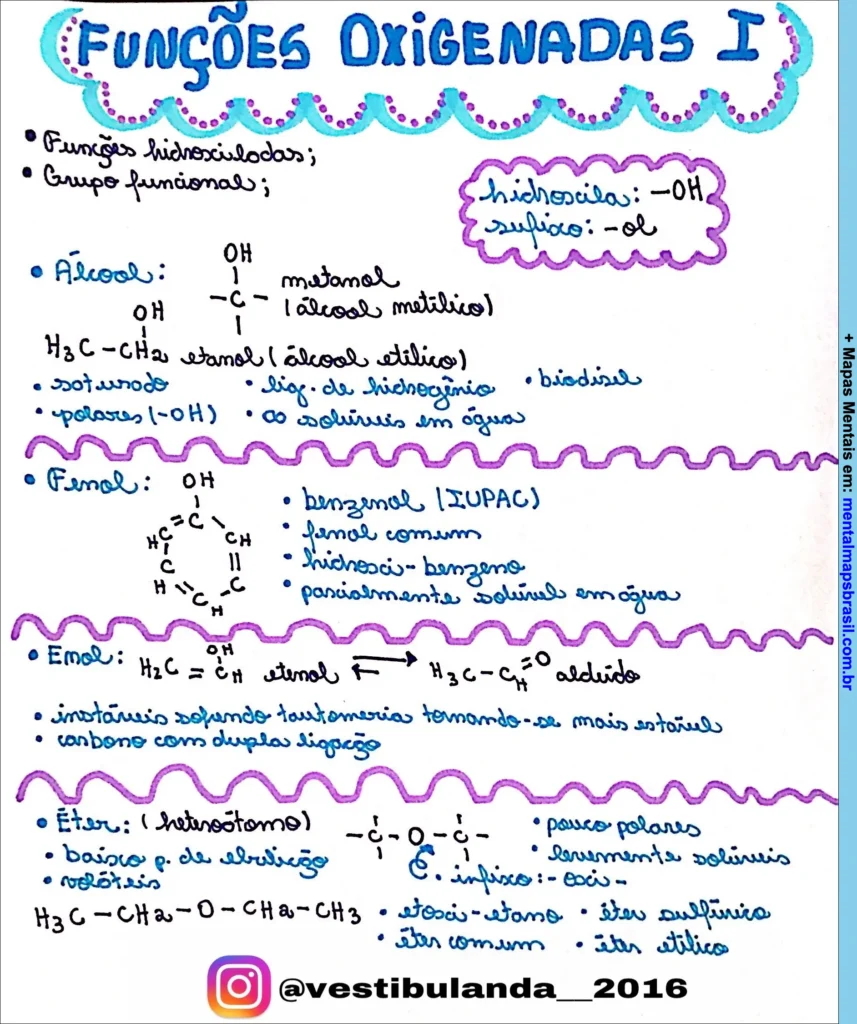 FUNÇÕES OXIGENADAS I
• Funções hidroxiladas;
• Grupo funcional;
hidroxila: -OH
sufixo: -ol
• Álcool:
OH
-C-
metanol
(álcool metílico)
OH
H3C-CH2 etanol (álcool etílico)
• saturado • lig. de hidrogênio • biodisel
• polares (-OH) • ∞ solúveis em água
• Fenol:
OH
C
HC CH
C C
H C H
H
• benzenol (IUPAC)
• fenol comum
• hidroxi-benzeno
• parcialmente solúvel em água
• Enol:
OH
H2C = CH etenol ⇄ H3C-C=O aldeído
H
• instáveis sofrendo tautomeria tornando-se mais estável
• carbono com dupla ligação
• Éter: (heteroátomo)
-C-O-C-
• pouco polares
• baixo p. de ebulição
• levemente solúveis
• voláteis
infixo: -oxi-
H3C-CH2-O-CH2-CH3
• etoxi-etano • éter sulfúrico
• éter comum • éter etílico
@vestibulanda__2016
+ Mapas Mentais em: mentalmapsbrasil.com.br